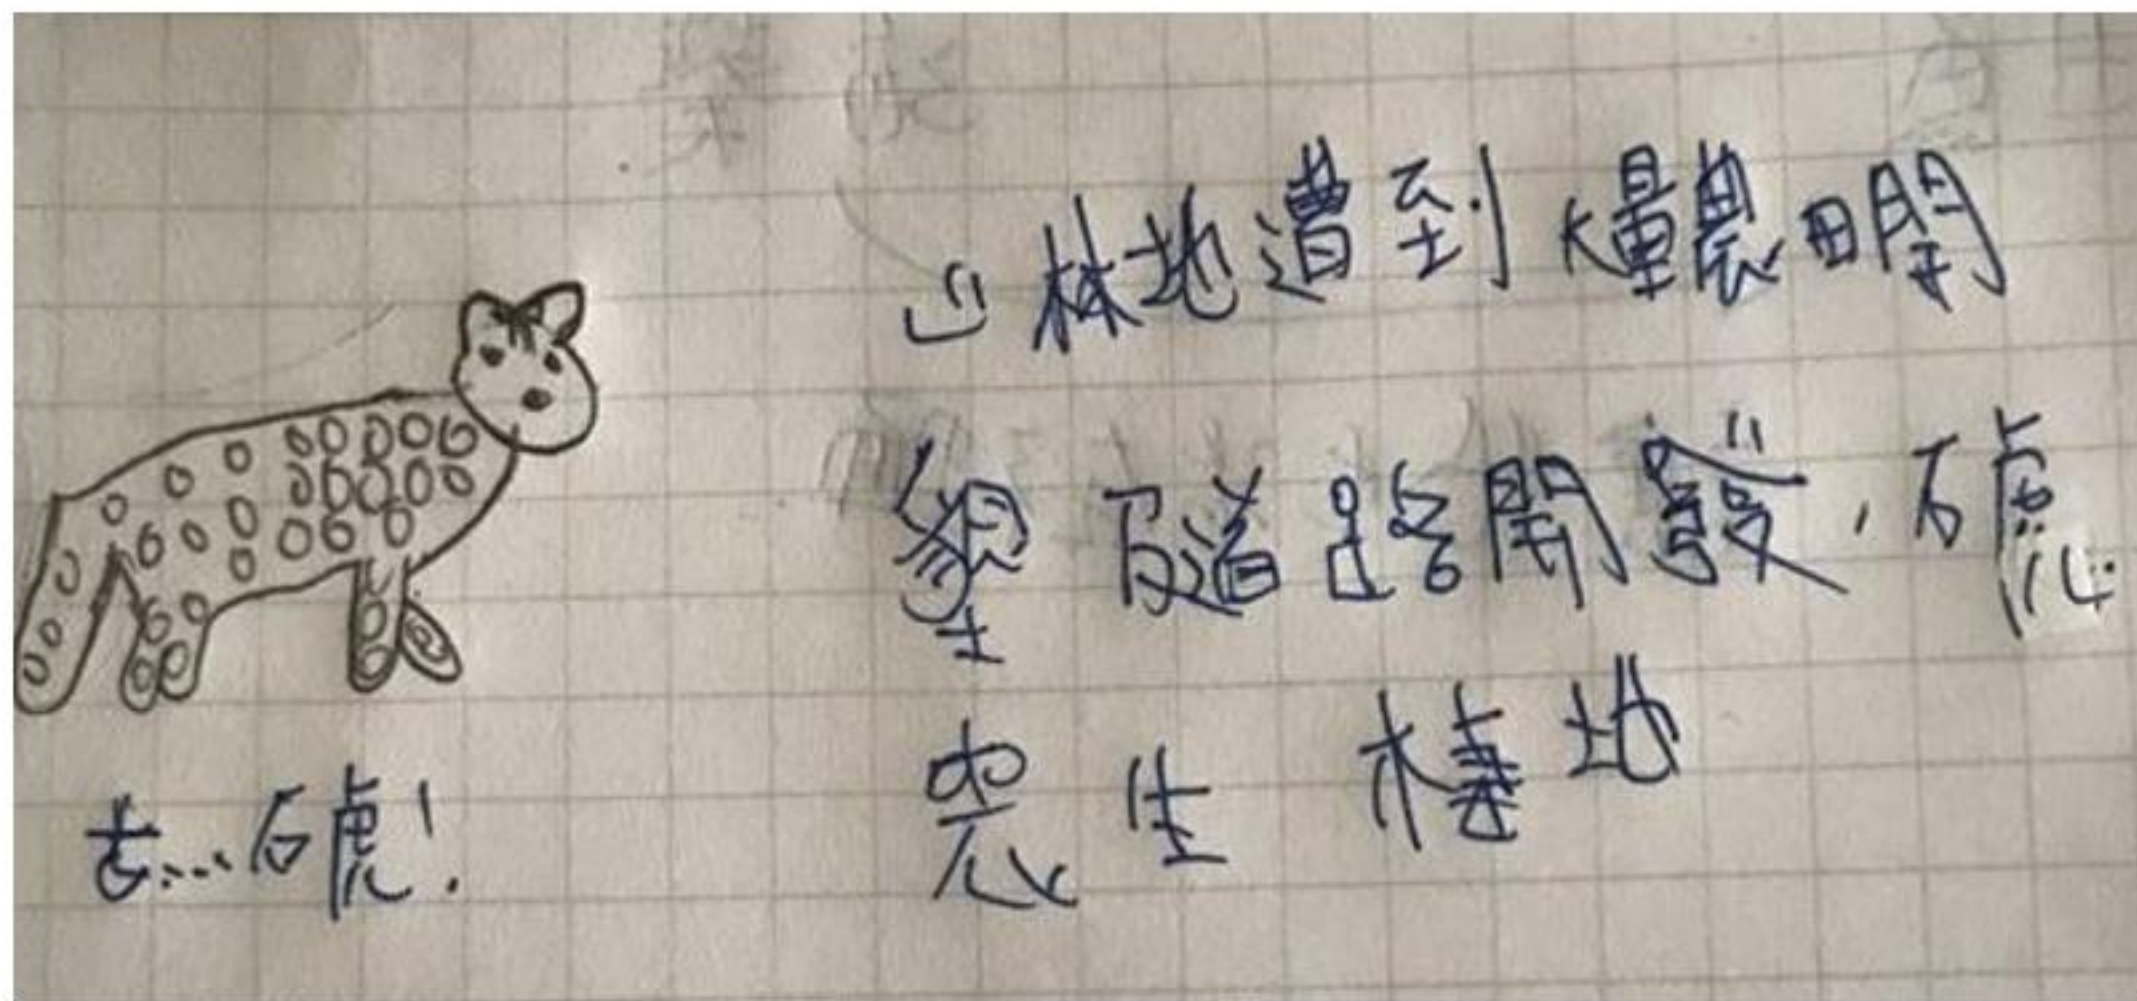 山林地遭到大量農田開
墾及道路開發,石虎
喪生棲地
去...石虎!